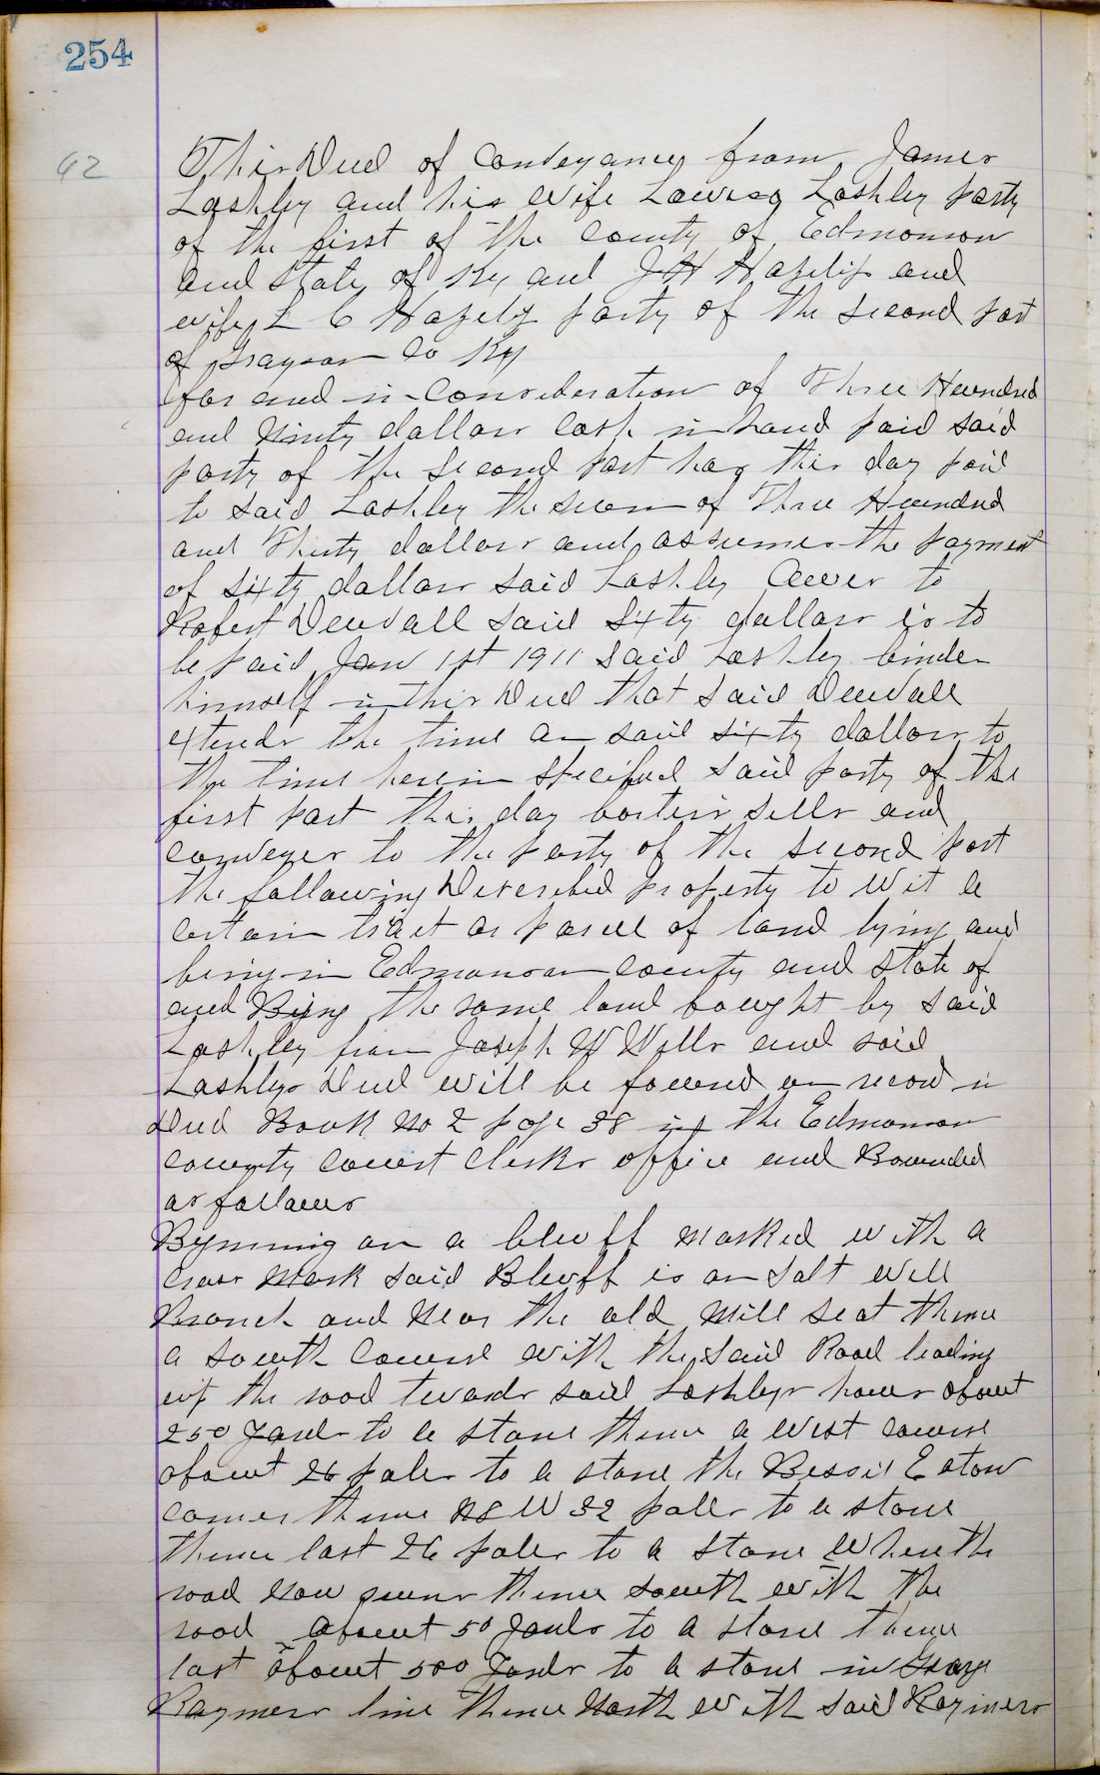 254
62
This Deed of Conveyance from James
Lashley and his wife Louisa Lashley party
of the first of the County of Edmonson
and State of Ky and J H Hazelip and
wife L C Hazelip party of the second part
of Grayson Co Ky
for and in Consideration of Three Hundred
and Ninty dollars Cash in hand paid said
party of the second part has this day paid
to said Lashley the sum of Three Hundred
and Thirty dollars and assumes the payment
of sixty dollars said Lashley Owes to
Robert Deuvall said Sixty dollars is to
be paid Jan 1st 1911 said Lashley binden
himself in this Deed that said Deuvall
extends the time on said sixty dollars to
the time herein specified said party of the
first part this day sells and
conveyes to the party of the second part
the following Described property to wit a
certain tract or parcel of land lying and
being in Edmonson county and state of
and Being the same land bought by said
Lashley from Joseph W Wells and said
Lashleys Deed will be found on record in
Deed Book No 2 page 38 in the Edmonson
county Court Clerks office and Bounded
as follows
on a bluff marked with a
Cross Mark said Bluff is on Salt Well
Branch and Near the old Mill seat thence
a south Course with the said Road leading
up the road twards said Lashleys house about
250 Yards to a stone thence a West course
about 26 poles to a stone the Bessie Eaton
corner thence N 8 W 32 poles to a stone
thence East 26 poles to a stone Where the
road Now runs thence south with the
road about 50 Yards to a stone thence
East about 500 Yards to a stone in George
Raymers line thence North with said Raymers